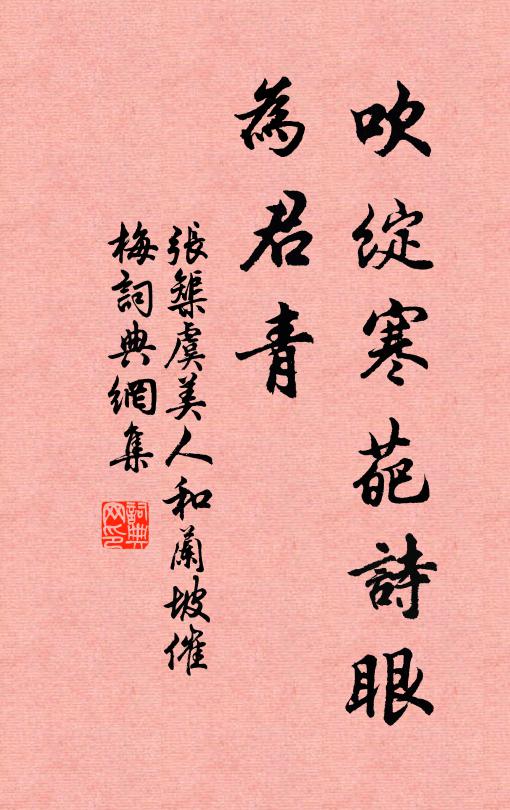 吹綻寒葩詩眼
為君青
張榘虞美人和蘭坡催
梅詞典網集
詞典網印